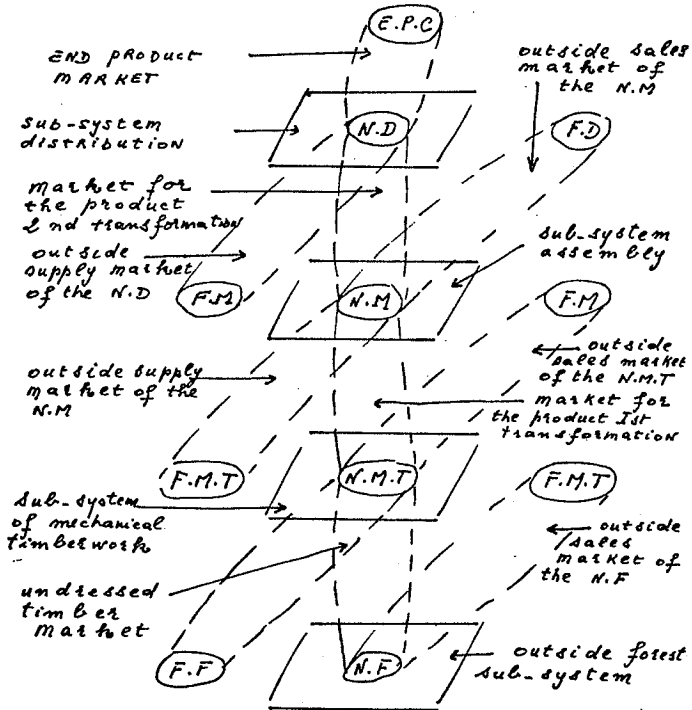 E.P.C
END PRODUCT
MARKET
outside sales
market of
the N.M
sub-system
distribution
N.D
F.D
market for
the product
2nd transformation
outside
supply market
of the N.D
sub-system
assembly
F.M
N.M
F.M
outside supply
market of the
N.M
outside
sales market
of the N.M.T
market for
the product Ist
transformation
F.M.T
N.M.T
F.M.T
sub-system
of mechanical
timberwork
outside
sales
market of
the N.F
undressed
timber
market
F.F
N.F
outside forest
sub-system